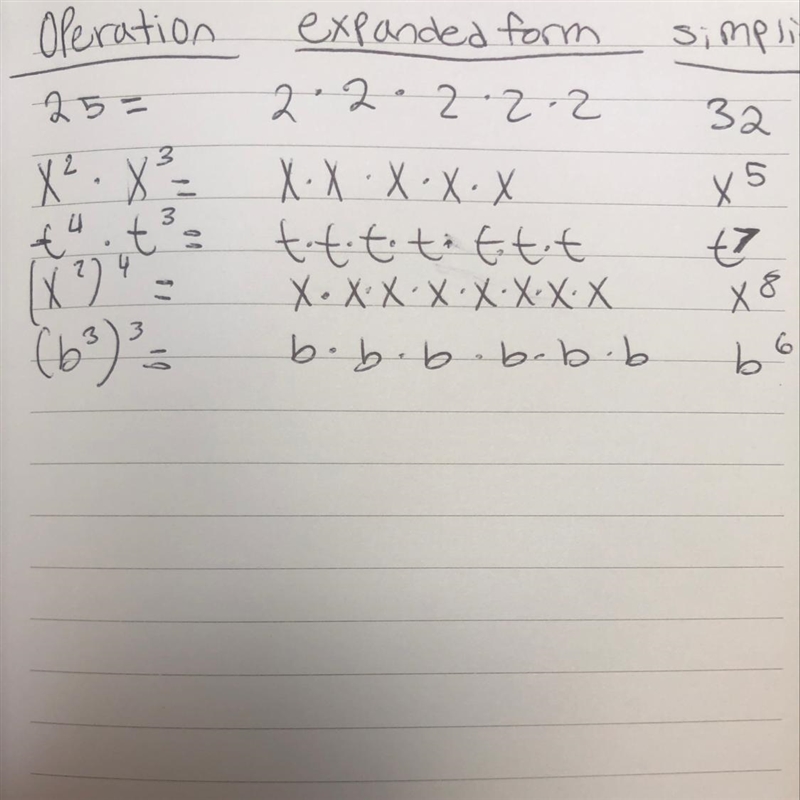 Operation expanded form simpli
25 = 2 · 2 · 2 · 2 · 2 32
x² · x³ = x · x · x · x · x x⁵
t⁴ · t³ = t · t · t · t · t · t · t t⁷
(x²)⁴ = x · x · x · x · x · x · x · x x⁸
(b³)³ = b · b · b · b · b · b b⁶